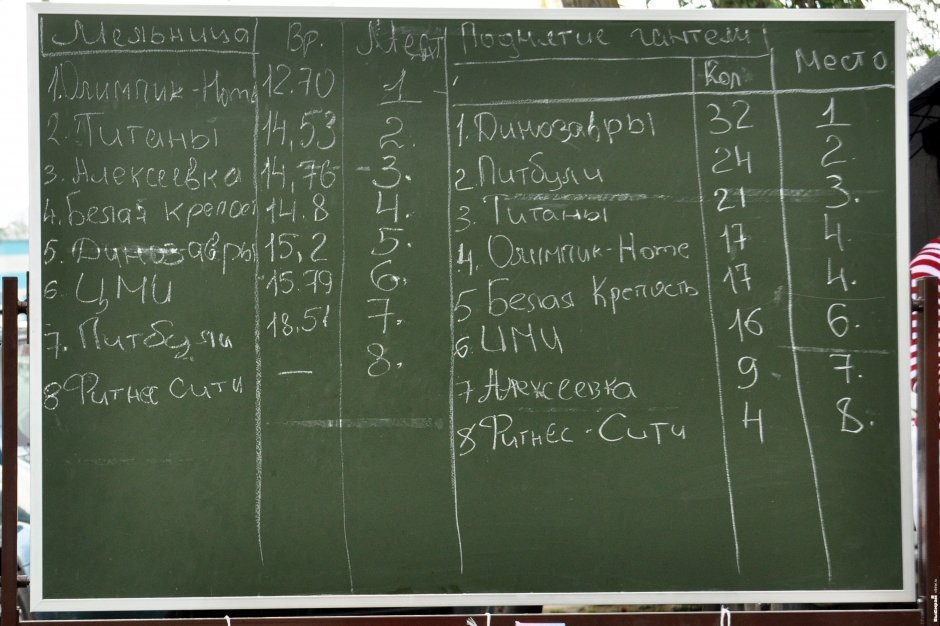 Мельница Вр. Мест
1. Олимпик-Home 12.70 1
2. Титаны 14,53 2.
3. Алексеевка 14,76 -3.
4. Белая крепос 14.8 4.
5. Динозавры 15,2 5.
6 ЦМИ 15.79 6.
7. Питбули 18.51 7.
8 Фитнес Сити — 8.
Поднятие гантели
Кол Место
1. Динозавры 32 1
2. Питбули 24 2.
3. Титаны 21 3.
4. Олимпик-Home 17 4.
5 Белая Крепость 17 4.
6 ЦМИ 16 6.
7 Алексеевка 9 7.
8 Фитнес-Сити 4 8.